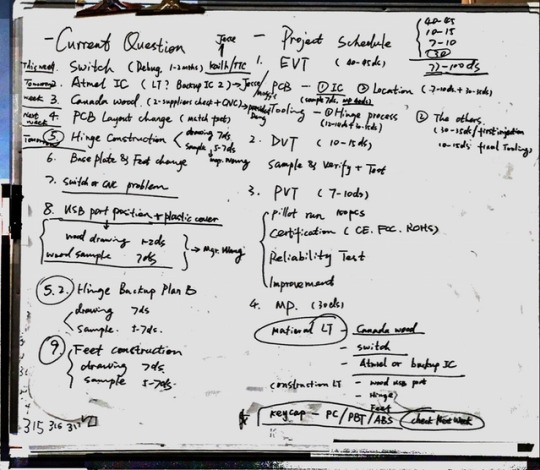 - Current Question
This week 1. Switch (Debug, 1-2 weeks) Kailh/TTC
Jesse
Tomorrow 2. Atmel IC (LT? Backup IC?) → Jesse
week 3. Canada wood. (2-suppliers chest + CNC)
Next week 4. PCB Layout change (match port)
Tomorrow 5. Hinge Construction
drawing 7ds
sample 5-7ds
Mgr. Wang
6. Base plate & Feet change
7. switch or CNC problem
8. USB port position + plastic cover
wood drawing 1-2ds
wood sample 7ds
→ Mgr. Wang
5.2. Hinge Backup Plan B
drawing 7ds
sample. 5-7ds.
9. Feet construction
drawing 7ds
sample 5-7ds.
315 316 317
- Project Schedule
40-45
10-15
7-10
30
1. EVT (40-45ds)
PCB - ① IC ② Location (7-10ds + 30-35ds)
Tooling - ① Hinge process
② The others
(30-35ds/first injection
10-15ds final Tooling)
2. DVT (10-15ds)
Sample & Verify + Test
3. PVT (7-10ds)
pillot run 100pcs
Certification (CE. FCC. ROHS)
Reliability Test
Improvement
4. MP. (30ds)
material LT - Canada wood
- switch
- Atmel or backup IC
construction LT - wood USB port
- Hinge
Feet
Keycap - PC/PBT/ABS check Next week